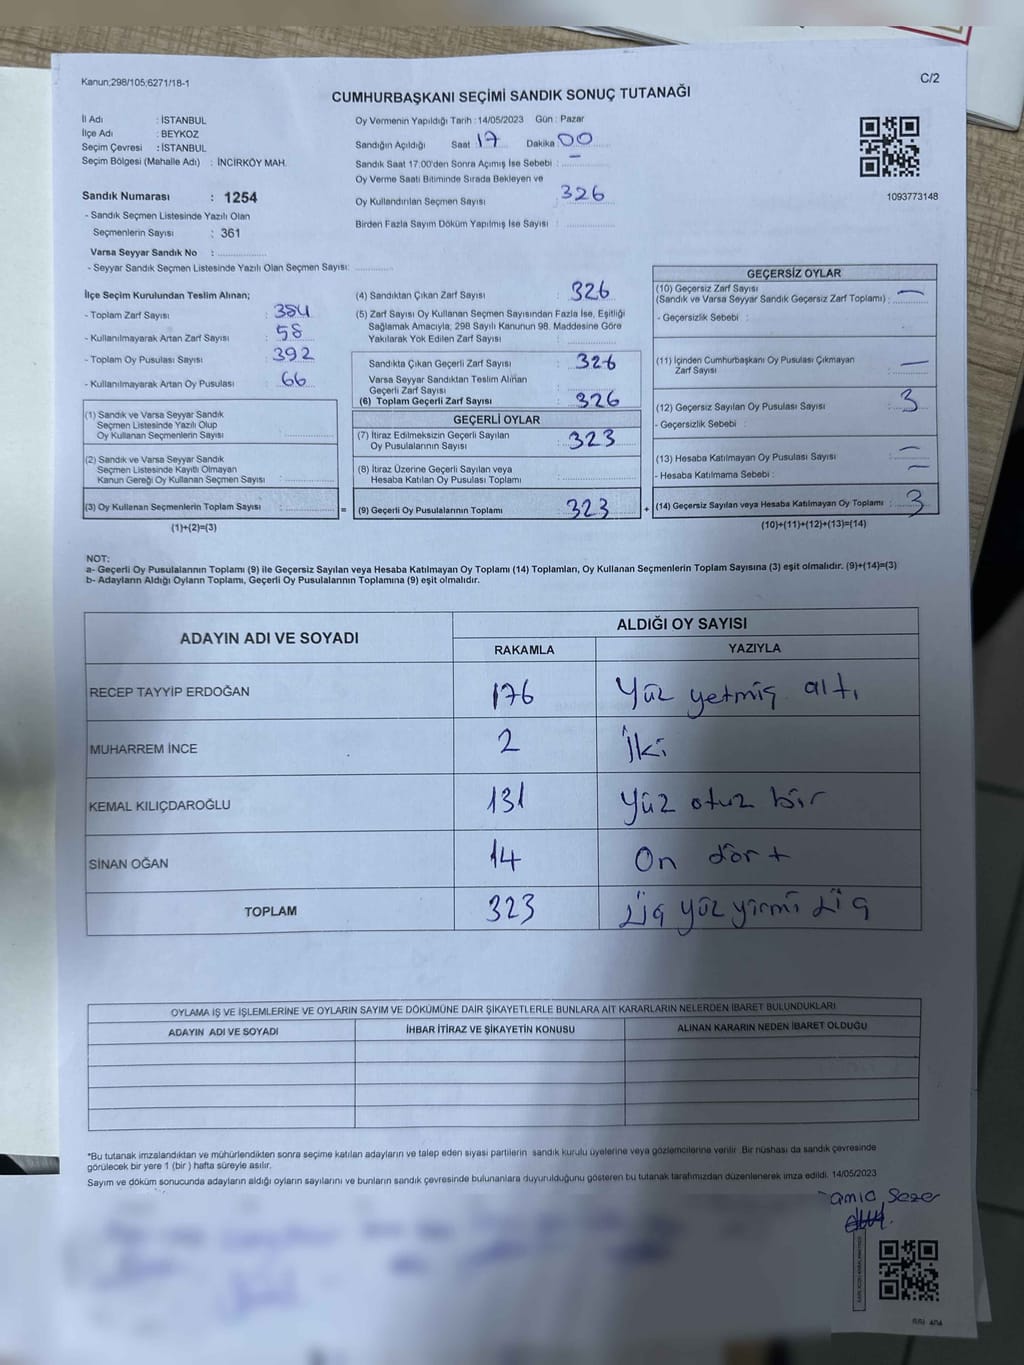 Kanun;298/105;6271/18-1
C/2
CUMHURBAŞKANI SEÇİMİ SANDIK SONUÇ TUTANAĞI
İl Adı : İSTANBUL
İlçe Adı : BEYKOZ
Seçim Çevresi : İSTANBUL
Seçim Bölgesi (Mahalle Adı) : İNCİRKÖY MAH.
Sandık Numarası : 1254
- Sandık Seçmen Listesinde Yazılı Olan
Seçmenlerin Sayısı : 361
Varsa Seyyar Sandık No :
- Seyyar Sandık Seçmen Listesinde Yazılı Olan Seçmen Sayısı:
Oy Vermenin Yapıldığı Tarih : 14/05/2023 Gün : Pazar
Sandığın Açıldığı Saat 17 Dakika 00
Sandık Saat 17:00'den Sonra Açımış İse Sebebi : —
Oy Verme Saati Bitiminde Sırada Bekleyen ve
Oy Kullandırılan Seçmen Sayısı : 326
Birden Fazla Sayım Döküm Yapılmış İse Sayısı :
1093773148
İlçe Seçim Kurulundan Teslim Alınan;
- Toplam Zarf Sayısı : 384
- Kullanılmayarak Artan Zarf Sayısı : 58
- Toplam Oy Pusulası Sayısı : 392
- Kullanılmayarak Artan Oy Pusulası : 66
(1) Sandık ve Varsa Seyyar Sandık
Seçmen Listesinde Yazılı Olup
Oy Kullanan Seçmenlerin Sayısı :
(2) Sandık ve Varsa Seyyar Sandık
Seçmen Listesinde Kayıtlı Olmayan
Kanun Gereği Oy Kullanan Seçmen Sayısı :
(3) Oy Kullanan Seçmenlerin Toplam Sayısı : =
(1)+(2)=(3)
(4) Sandıktan Çıkan Zarf Sayısı : 326
(5) Zarf Sayısı Oy Kullanan Seçmen Sayısından Fazla İse, Eşitliği
Sağlamak Amacıyla, 298 Sayılı Kanunun 98. Maddesine Göre
Yakılarak Yok Edilen Zarf Sayısı :
Sandıkta Çıkan Geçerli Zarf Sayısı : 326
Varsa Seyyar Sandıktan Teslim Alınan
Geçerli Zarf Sayısı :
(6) Toplam Geçerli Zarf Sayısı : 326
GEÇERLİ OYLAR
(7) İtiraz Edilmeksizin Geçerli Sayılan
Oy Pusulalarının Sayısı : 323
(8) İtiraz Üzerine Geçerli Sayılan veya
Hesaba Katılan Oy Pusulası Toplamı :
(9) Geçerli Oy Pusulalarının Toplamı : 323 +
GEÇERSİZ OYLAR
(10) Geçersiz Zarf Sayısı
(Sandık ve Varsa Seyyar Sandık Geçersiz Zarf Toplamı) : —
- Geçersizlik Sebebi :
(11) İçinden Cumhurbaşkanı Oy Pusulası Çıkmayan
Zarf Sayısı : —
(12) Geçersiz Sayılan Oy Pusulası Sayısı : 3
- Geçersizlik Sebebi :
(13) Hesaba Katılmayan Oy Pusulası Sayısı : —
- Hesaba Katılmama Sebebi : —
(14) Geçersiz Sayılan veya Hesaba Katılmayan Oy Toplamı : 3
(10)+(11)+(12)+(13)=(14)
NOT:
a- Geçerli Oy Pusulalarının Toplamı (9) ile Geçersiz Sayılan veya Hesaba Katılmayan Oy Toplamı (14) Toplamları, Oy Kullanan Seçmenlerin Toplam Sayısına (3) eşit olmalıdır. (9)+(14)=(3)
b- Adayların Aldığı Oyların Toplamı, Geçerli Oy Pusulalarının Toplamına (9) eşit olmalıdır.
ADAYIN ADI VE SOYADI
ALDIĞI OY SAYISI
RAKAMLA YAZIYLA
RECEP TAYYİP ERDOĞAN 176 Yüz yetmiş altı
MUHARREM İNCE 2 İki
KEMAL KILIÇDAROĞLU 131 Yüz otuz bir
SİNAN OĞAN 14 On dört
TOPLAM 323 Üç yüz yirmi üç
OYLAMA İŞ VE İŞLEMLERİNE VE OYLARIN SAYIM VE DÖKÜMÜNE DAİR ŞİKAYETLERLE BUNLARA AİT KARARLARIN NELERDEN İBARET BULUNDUKLARI
ADAYIN ADI VE SOYADI İHBAR İTİRAZ VE ŞİKAYETİN KONUSU ALINAN KARARIN NEDEN İBARET OLDUĞU
*Bu tutanak imzalandıktan ve mühürlendikten sonra seçime katılan adayların ve talep eden siyasi partilerin sandık kurulu üyelerine veya gözlemcilerine verilir. Bir nüshası da sandık çevresinde
görülecek bir yere 1 (bir ) hafta süreyle asılır.
Sayım ve döküm sonucunda adayların aldığı oyların sayılarını ve bunların sandık çevresinde bulunanlara duyurulduğunu gösteren bu tutanak tarafımızdan düzenlenerek imza edildi. 14/05/2023
Sezer